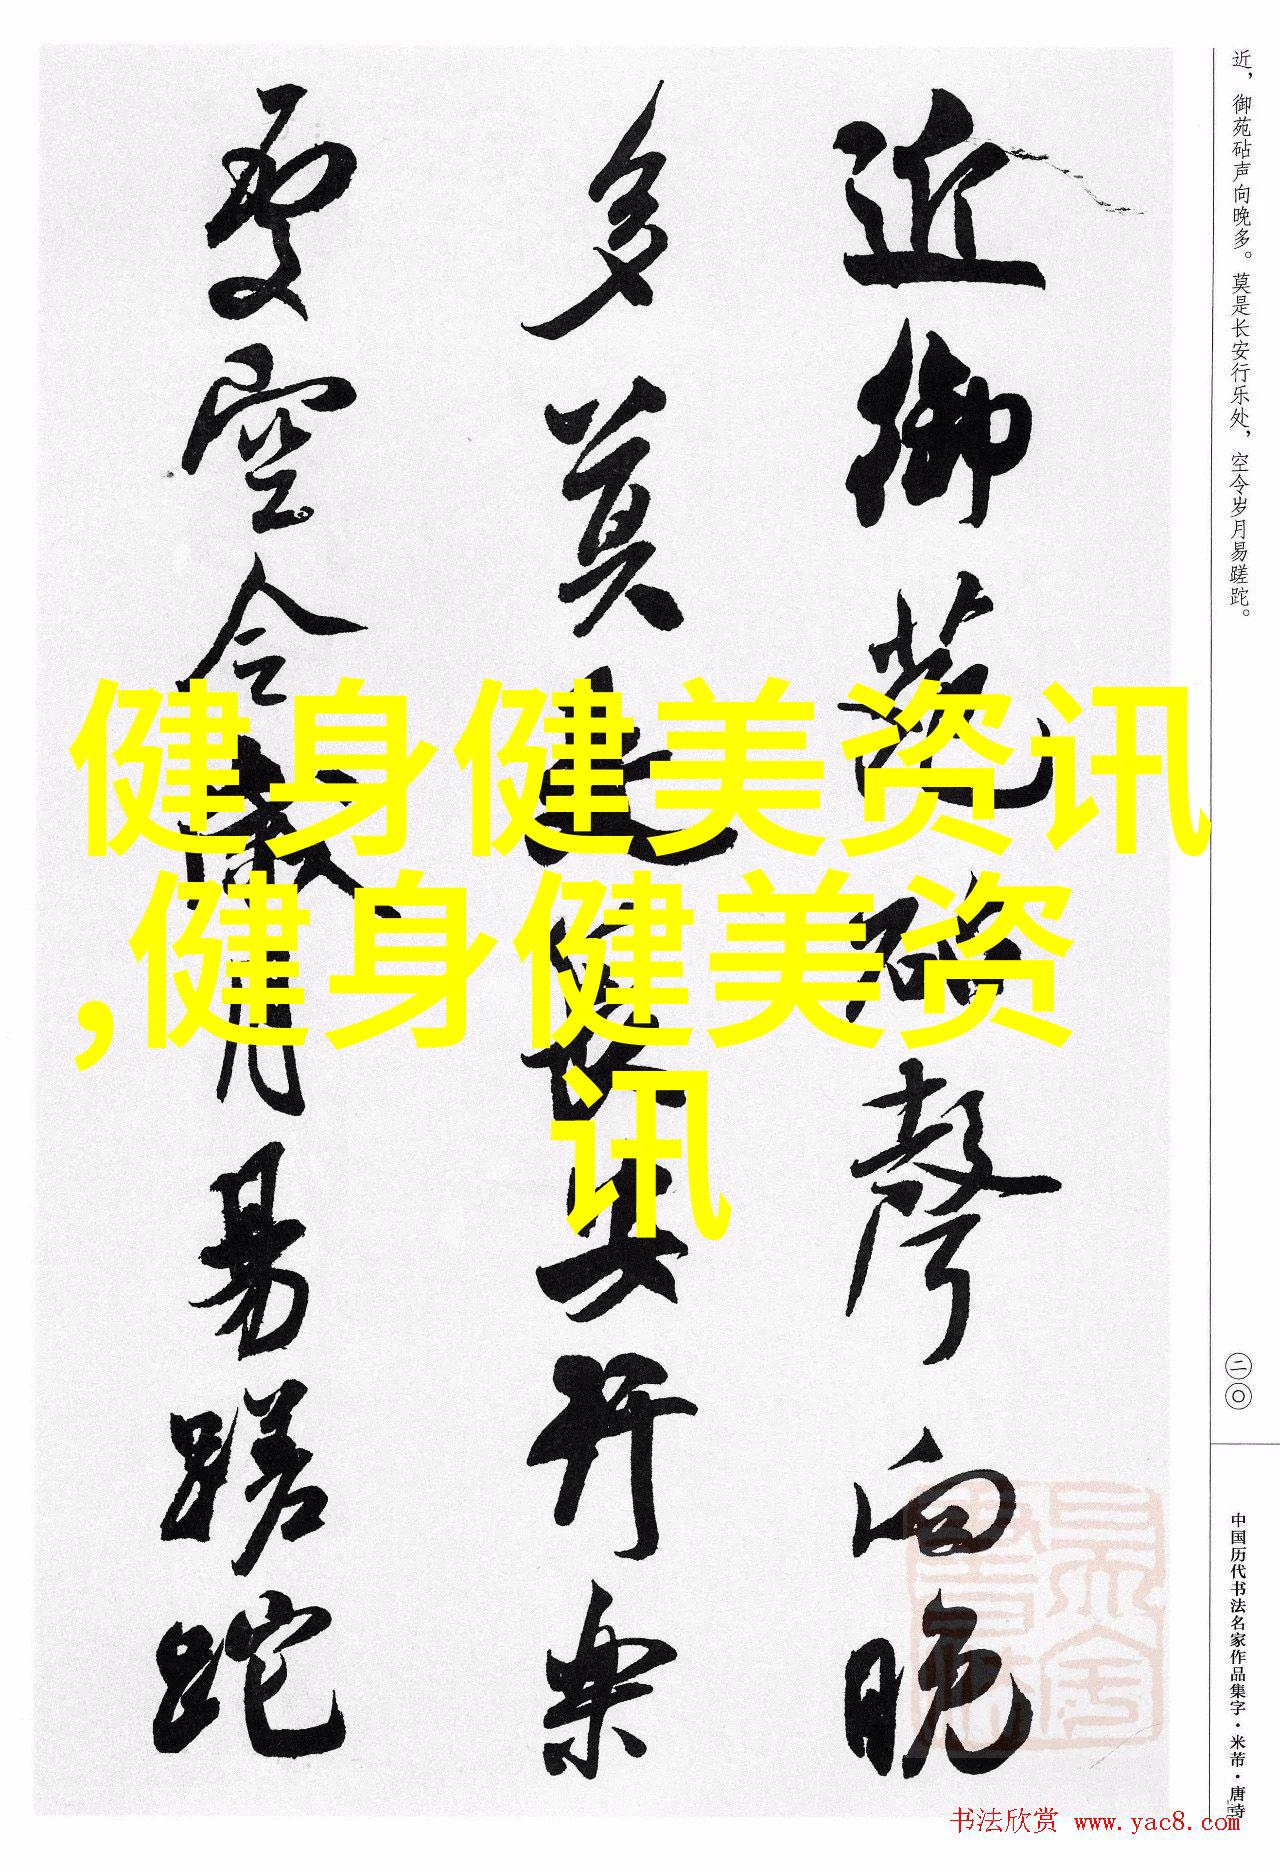 近，御苑砧声向晚多。莫是长安行乐处，空令岁月易蹉跎。
二〇
中国历代书法名家作品集字·米芾·唐诗
近御苑砧聲向晚
多莫是長安行樂
處空令歲月易蹉跎
健身健美资讯
,健身健美资
讯
书法欣赏 www.yac8.com